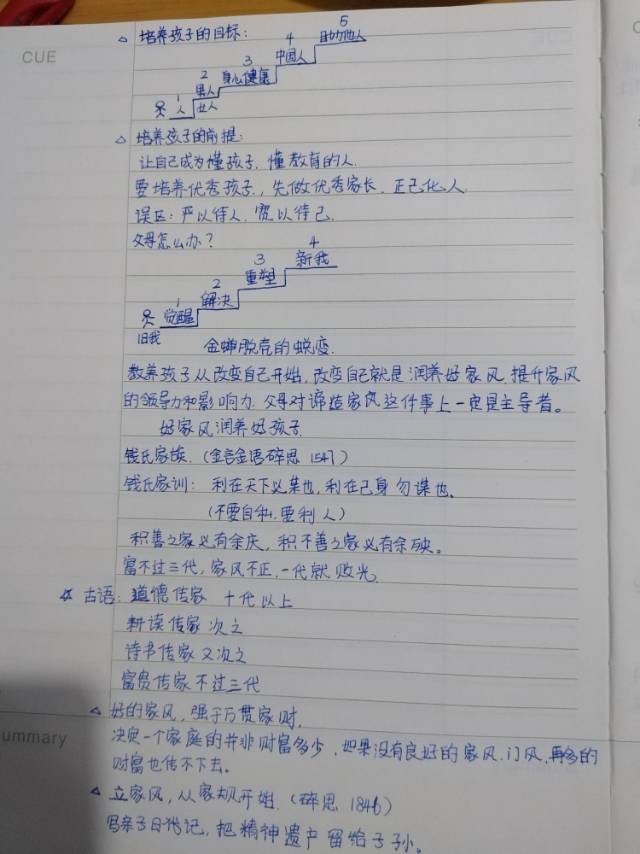 △ 培养孩子的目标:
5
4 助力他人
3 中国人
2 身心健康
1 男人
人 女人
CUE
△ 培养孩子的前提:
让自己成为懂孩子、懂教育的人.
要培养优秀孩子,先做优秀家长、正己化人
误区:严以待人、宽以待己.
父母怎么办?
4
3 新我
2 重塑
1 解决
觉醒
旧我
金蝉脱壳的蜕变.
教养孩子从改变自己开始,改变自己就是润养好家风.提升家风
的领导力和影响力.父母对缔造家风这件事上一定是主导者。
好家风润养好孩子
钱氏家族.(金言金语碎思 1547)
钱氏家训: 利在天下必谋也,利在己身勿谋也。
(不要自私,要利人)
积善之家必有余庆,积不善之家必有余殃。
富不过三代,家风不正,一代就败光
☆ 古语: 道德传家 十代以上
耕读传家 次之
诗书传家 又次之
富贵传家 不过三代
△ 好的家风,强于万贯家财.
决定一个家庭的并非财富多少,如果没有良好的家风、门风,再多的
财富也传不下去。
ummary
△ 立家风,从家规开始.(碎思 1846)
写亲子日记,把精神遗产留给子孙。